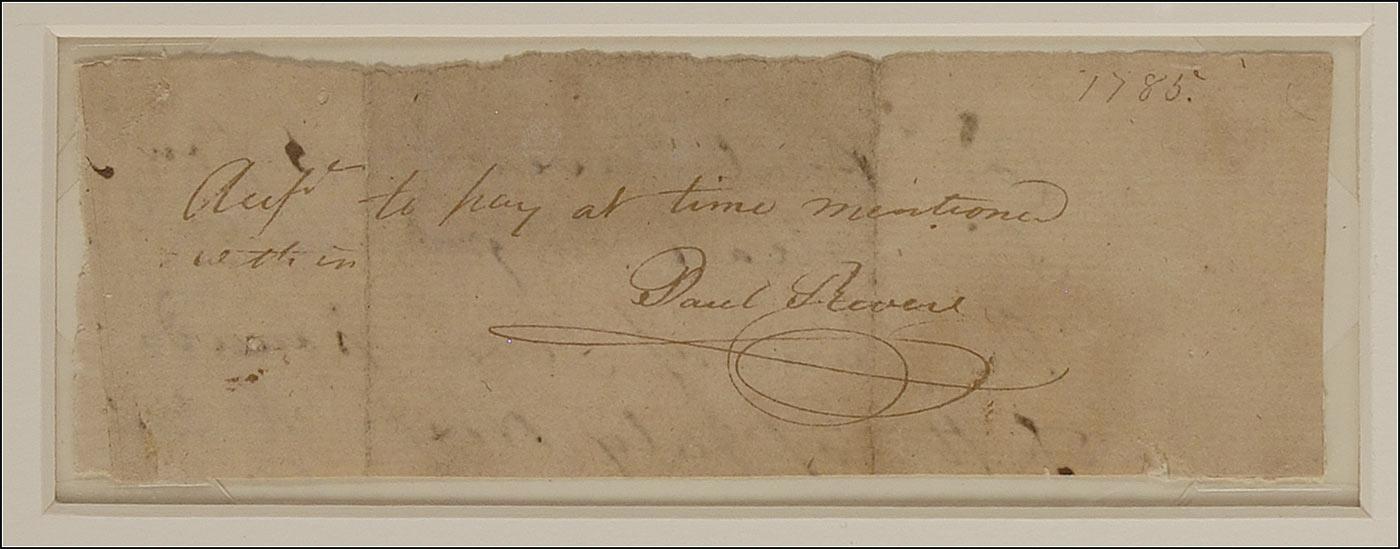 1785.
to pay at time mentioned
within
Paul Revere